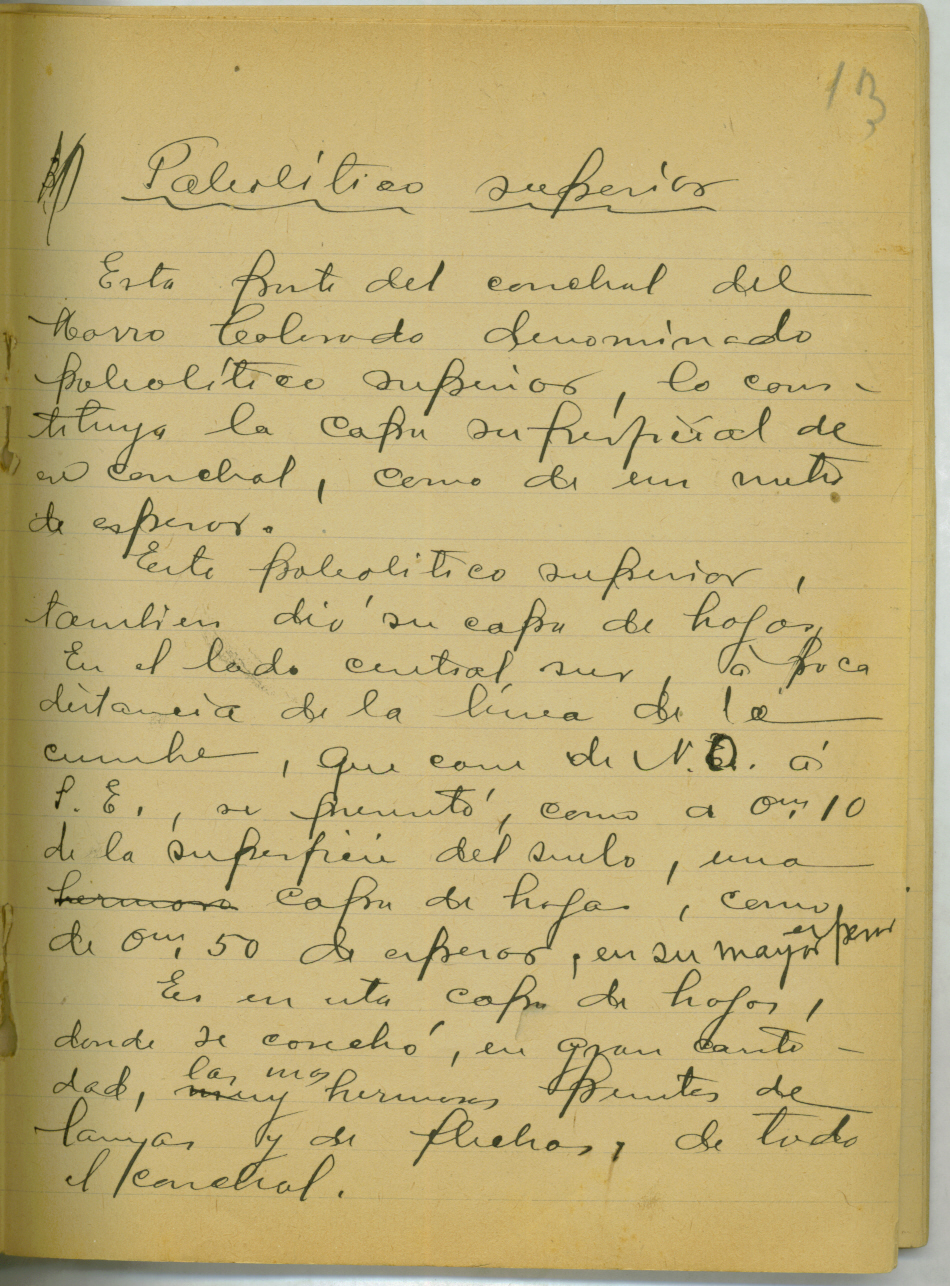 13
Paleolítico superior
Esta parte del conchal del
Morro Colorado denominado
paleolítico superior, lo cons-
tituya la capa superficial de
ese conchal, como de un metro
de espesor.
Este paleolitico superior,
tambien dió su capa de hojas,
En el lado central sur, a poca
distancia de la línea de la
cumbre, que corre de N.O. á
S.E., se presentó, como a 0m,10
de la superficie del suelo, una
hermosa capa de hojas, como
de 0m,50 de espesor, en su mayor espesor
Es en esta capa de hojas,
donde se cosechó, en gran canti-
dad, muy las mas hermosas puntas de
lanzas y de flechas, de todo
el conchal.